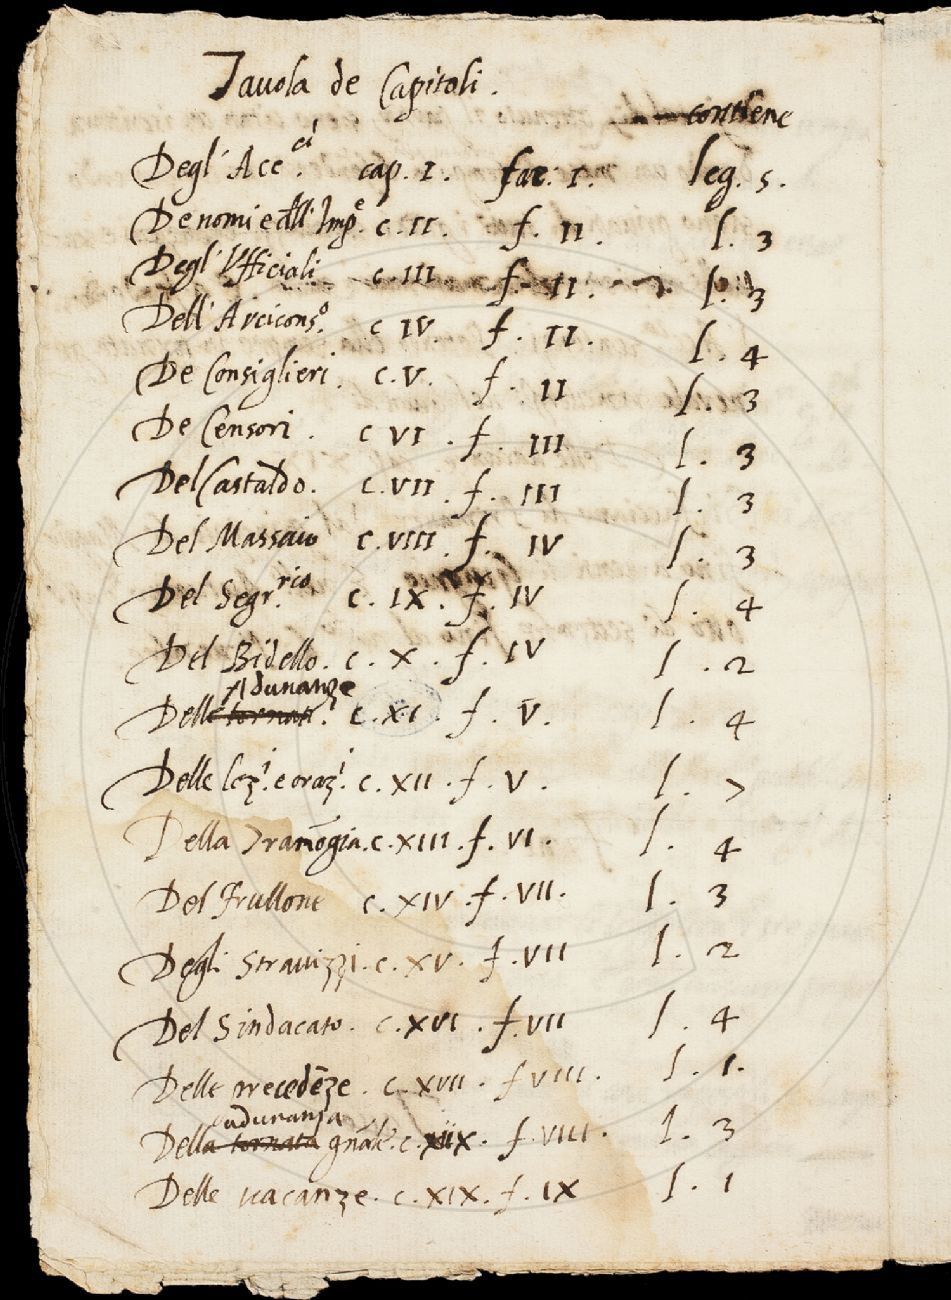 Tauola de Capitoli.
contiene
Degl' Acc.ci cap. I. fac. I. leg. 5.
De nomi e dll' Imp.e c. II. f. II. l. 3
Degl' Vfficiali c. III f. II. l. 3
Dell' Arcicons.o c IV f. II. l. 4
De Consiglieri. c. V. f. II l. 3
De Censori. c VI. f. III l. 3
Del Castaldo. c. VII. f. III l. 3
Del Massaio c. VIII. f. IV l. 3
Del Segr.rio c. IX. f. IV l. 4
Del Bidello. c. X. f. IV l. 2
Adunanze
Delle tornat.e c. XI. f. V. l. 4
Delle lez.i e oraz.i. c. XII. f. V. l. 7
Della Tramōgia. c. XIII. f. VI. l. 4
Del Frullone c. XIV. f. VII. l. 3
Degli Strauizzi. c. XV. f. VII l. 2
Del Sindacato. c. XVI. f. VII l. 4
Delle precedēze. c. XVII. f VIII. l. 1.
adunanza
Della tornata gnāle. c. XIIX. f. VIII. l. 3
Delle uacanze. c. XIX. f. IX l. 1